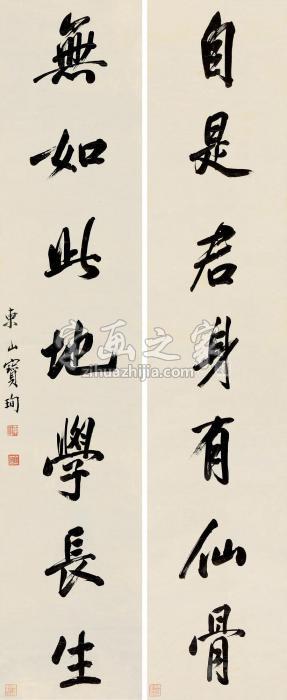 自是君身有仙骨
無如此地學長生
東山寶珣
字画之家
zihuazhijia.com